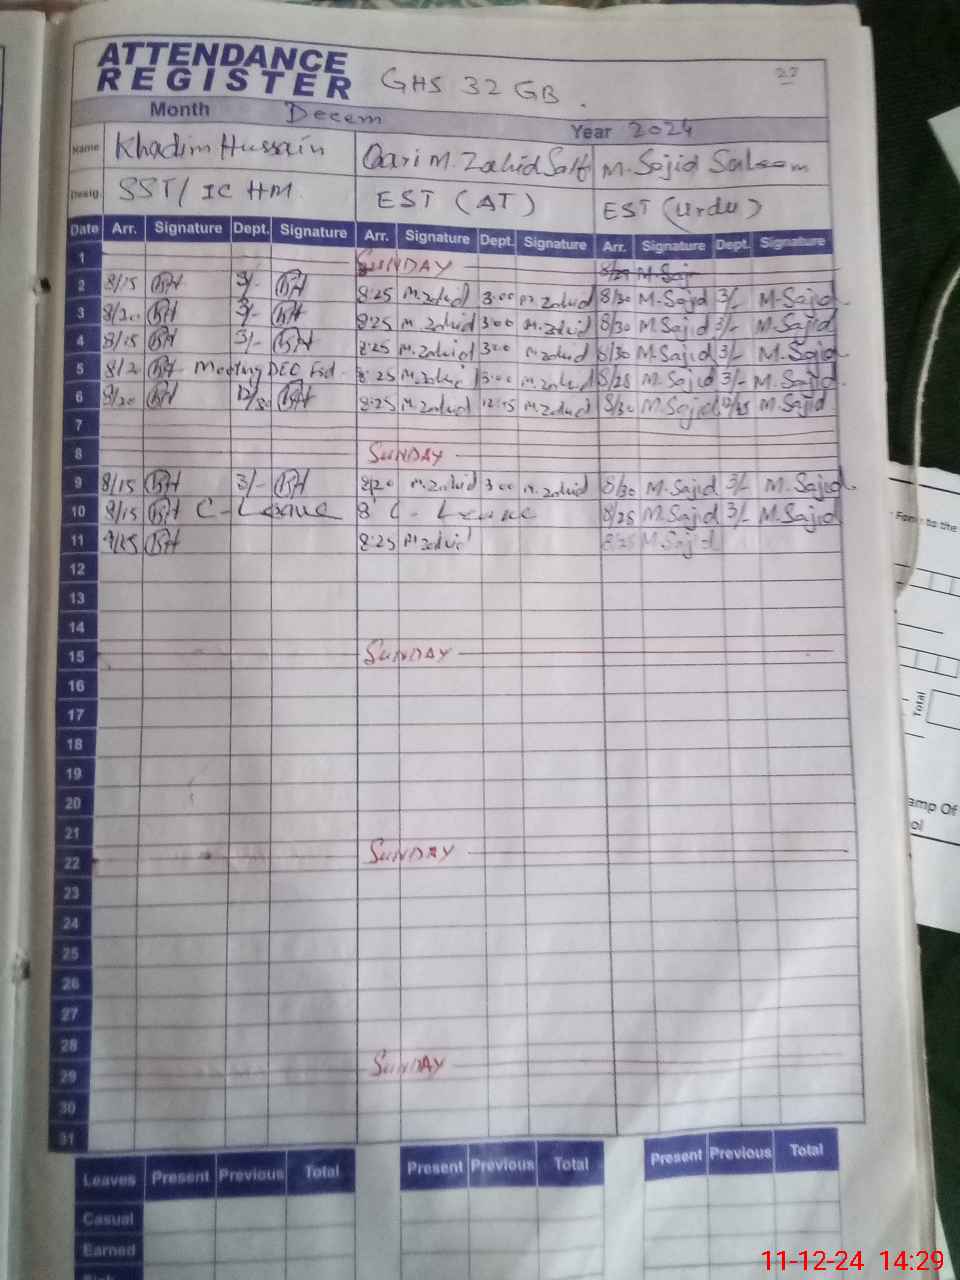 ATTENDANCE
REGISTER GHS 32 GB.
22
Month Decem
Year 2024
Name Khadim Hussain Qari M. Zahid Saif M. Sajid Saleem
Desig. SST/ IC HM. EST (AT) EST (Urdu)
Date Arr. Signature Dept. Signature Arr. Signature Dept. Signature Arr. Signature Dept. Signature
1 SUNDAY 8/29 M-Saj
2 8/15 3/- 8:25 M.Zahid 3:00 M.Zahid 8/30 M-Sajid 3/- M-Sajid
3 8/20 3/- 8:25 M.Zahid 3:00 M.Zahid 8/30 M-Sajid 3/- M-Sajid
4 8/15 3/- 8:25 M.Zahid 3:00 M.Zahid 8/30 M-Sajid 3/- M-Sajid
5 8/20 Meeting DEC Fsd 8:25 M.Zahid 3:00 M.Zahid 8/25 M-Sajid 3/- M-Sajid
6 8/20 12/30 8:25 M.Zahid 12:15 M.Zahid 8/30 M-Sajid M-Sajid
7
8 SUNDAY
9 8/15 3/- 8:20 M.Zahid 3:00 M.Zahid 8/30 M-Sajid 3/- M-Sajid
10 8/15 C-Leave 8 C-Leave 8/25 M-Sajid 3/- M-Sajid
11 8:25 M.Zahid 8/25 M-Sajid
12
13
14
15 SUNDAY
16
17
18
19
20
21
22 SUNDAY
23
24
25
26
27
28
29 SUNDAY
30
31
Leaves Present Previous Total Present Previous Total Present Previous Total
Casual
Earned
to the
Total
amp Of
ol
11-12-24 14:29